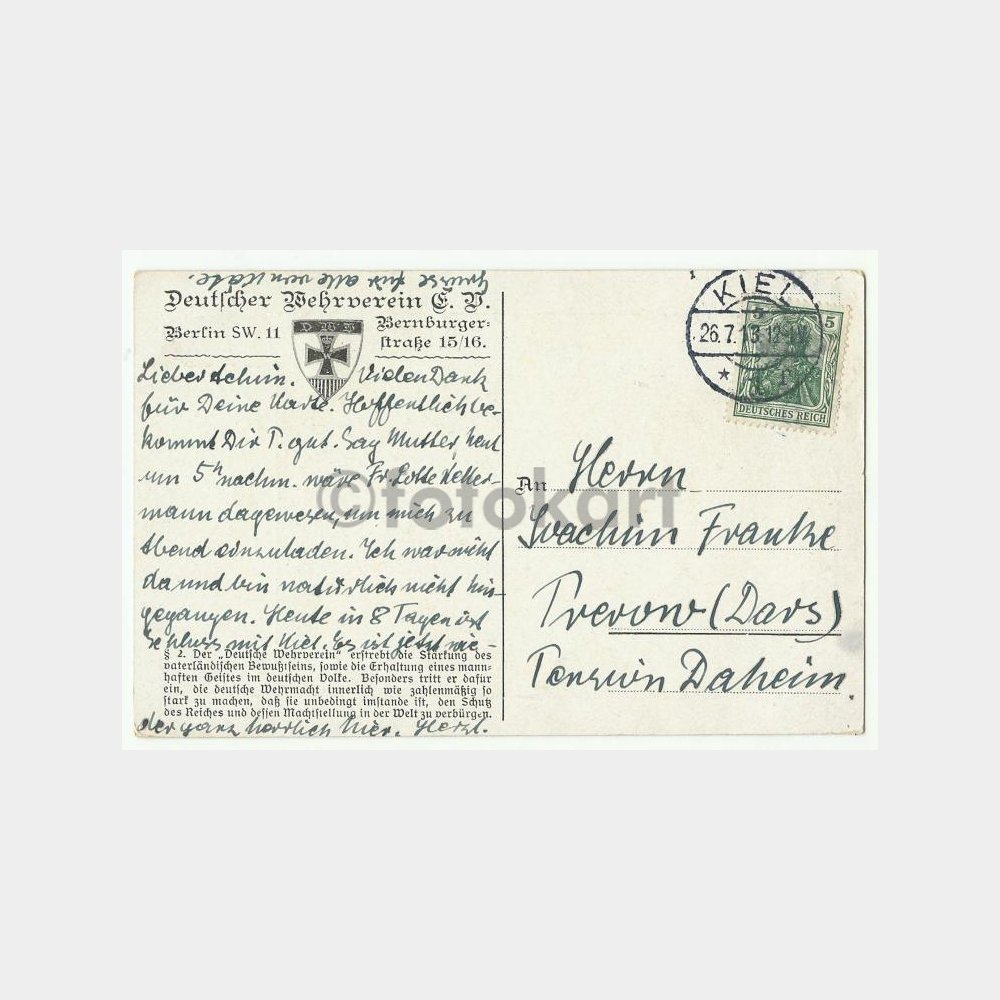 Deutscher Wehrverein E. V.
Berlin SW. 11
Bernburger-
straße 15/16.
D W V
Lieber Achim. Vielen Dank
für Deine Karte. Hoffentlich be-
kommt Dir P. gut. Sag Mutter, heut
um 5h nachm. wäre Frl. Lotte Keller-
mann dagewesen um mich zu
Abend einzuladen. Ich war nicht
da und bin natürlich nicht hin-
gegangen. Heute in 8 Tagen ist
Schluss mit Kiel. Es ist jetzt wie-
§ 2. Der „Deutsche Wehrverein“ erstrebt die Stärkung des
vaterländischen Bewußtseins, sowie die Erhaltung eines mann-
haften Geistes im deutschen Volke. Besonders tritt er dafür
ein, die deutsche Wehrmacht innerlich wie zahlenmäßig so
stark zu machen, daß sie unbedingt imstande ist, den Schutz
des Reiches und dessen Machtstellung in der Welt zu verbürgen.
der ganz herrlich hier. Herzl.
Grüsse für alle von
KIEL
26.7.13.12-1N
5 5
DEUTSCHES REICH
An Herrn
Joachim Franke
Prerow (Dars)
Pension Daheim.
©fotokart